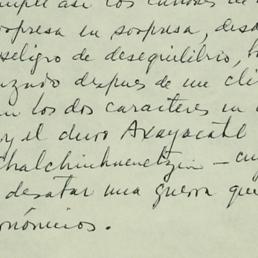 así los
sorpresa en sorpresa, desd
peligro de desequilibrio, h
después de un cli
los dos caracteres in
y el duro Axayacatl
Chalchiuhnenetzin — cuy
desatar una guerra que
onómicos.